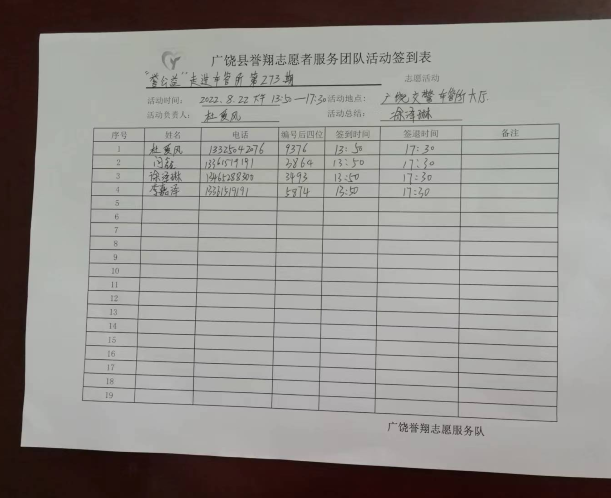 广饶县誉翔志愿者服务团队活动签到表
"誉公益"走进车管所第273期 志愿活动
活动时间: 2022.8.22 下午 13:50—17:30 活动地点: 广饶交警车管所大厅
活动负责人: 杜爱风 活动总结: 徐泽琳
序号 姓名 电话 编号后四位 签到时间 签退时间 备注
1 杜爱风 13325042076 9376 13:50 17:30
2 闫磊 13361519191 3864 13:50 17:30
3 徐泽琳 13465288300 3493 13:50 17:30
4 李嘉泽 13361519191 5874 13:50 17:30
5
6
7
8
9
10
11
12
13
14
15
16
17
18
19
广饶誉翔志愿服务队